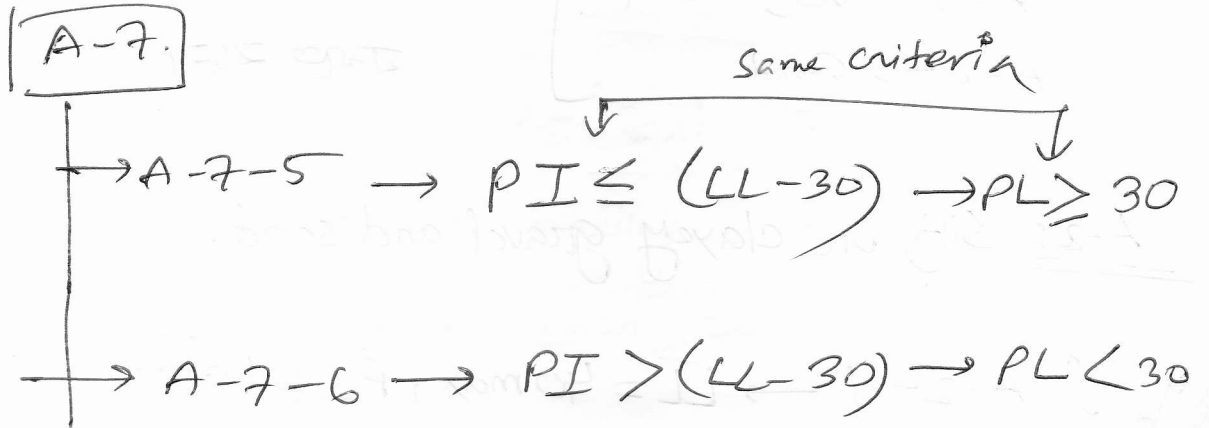 A-7.
same criteria
→ A-7-5 → PI ≤ (LL-30) → PL ≥ 30
→ A-7-6 → PI > (LL-30) → PL < 30